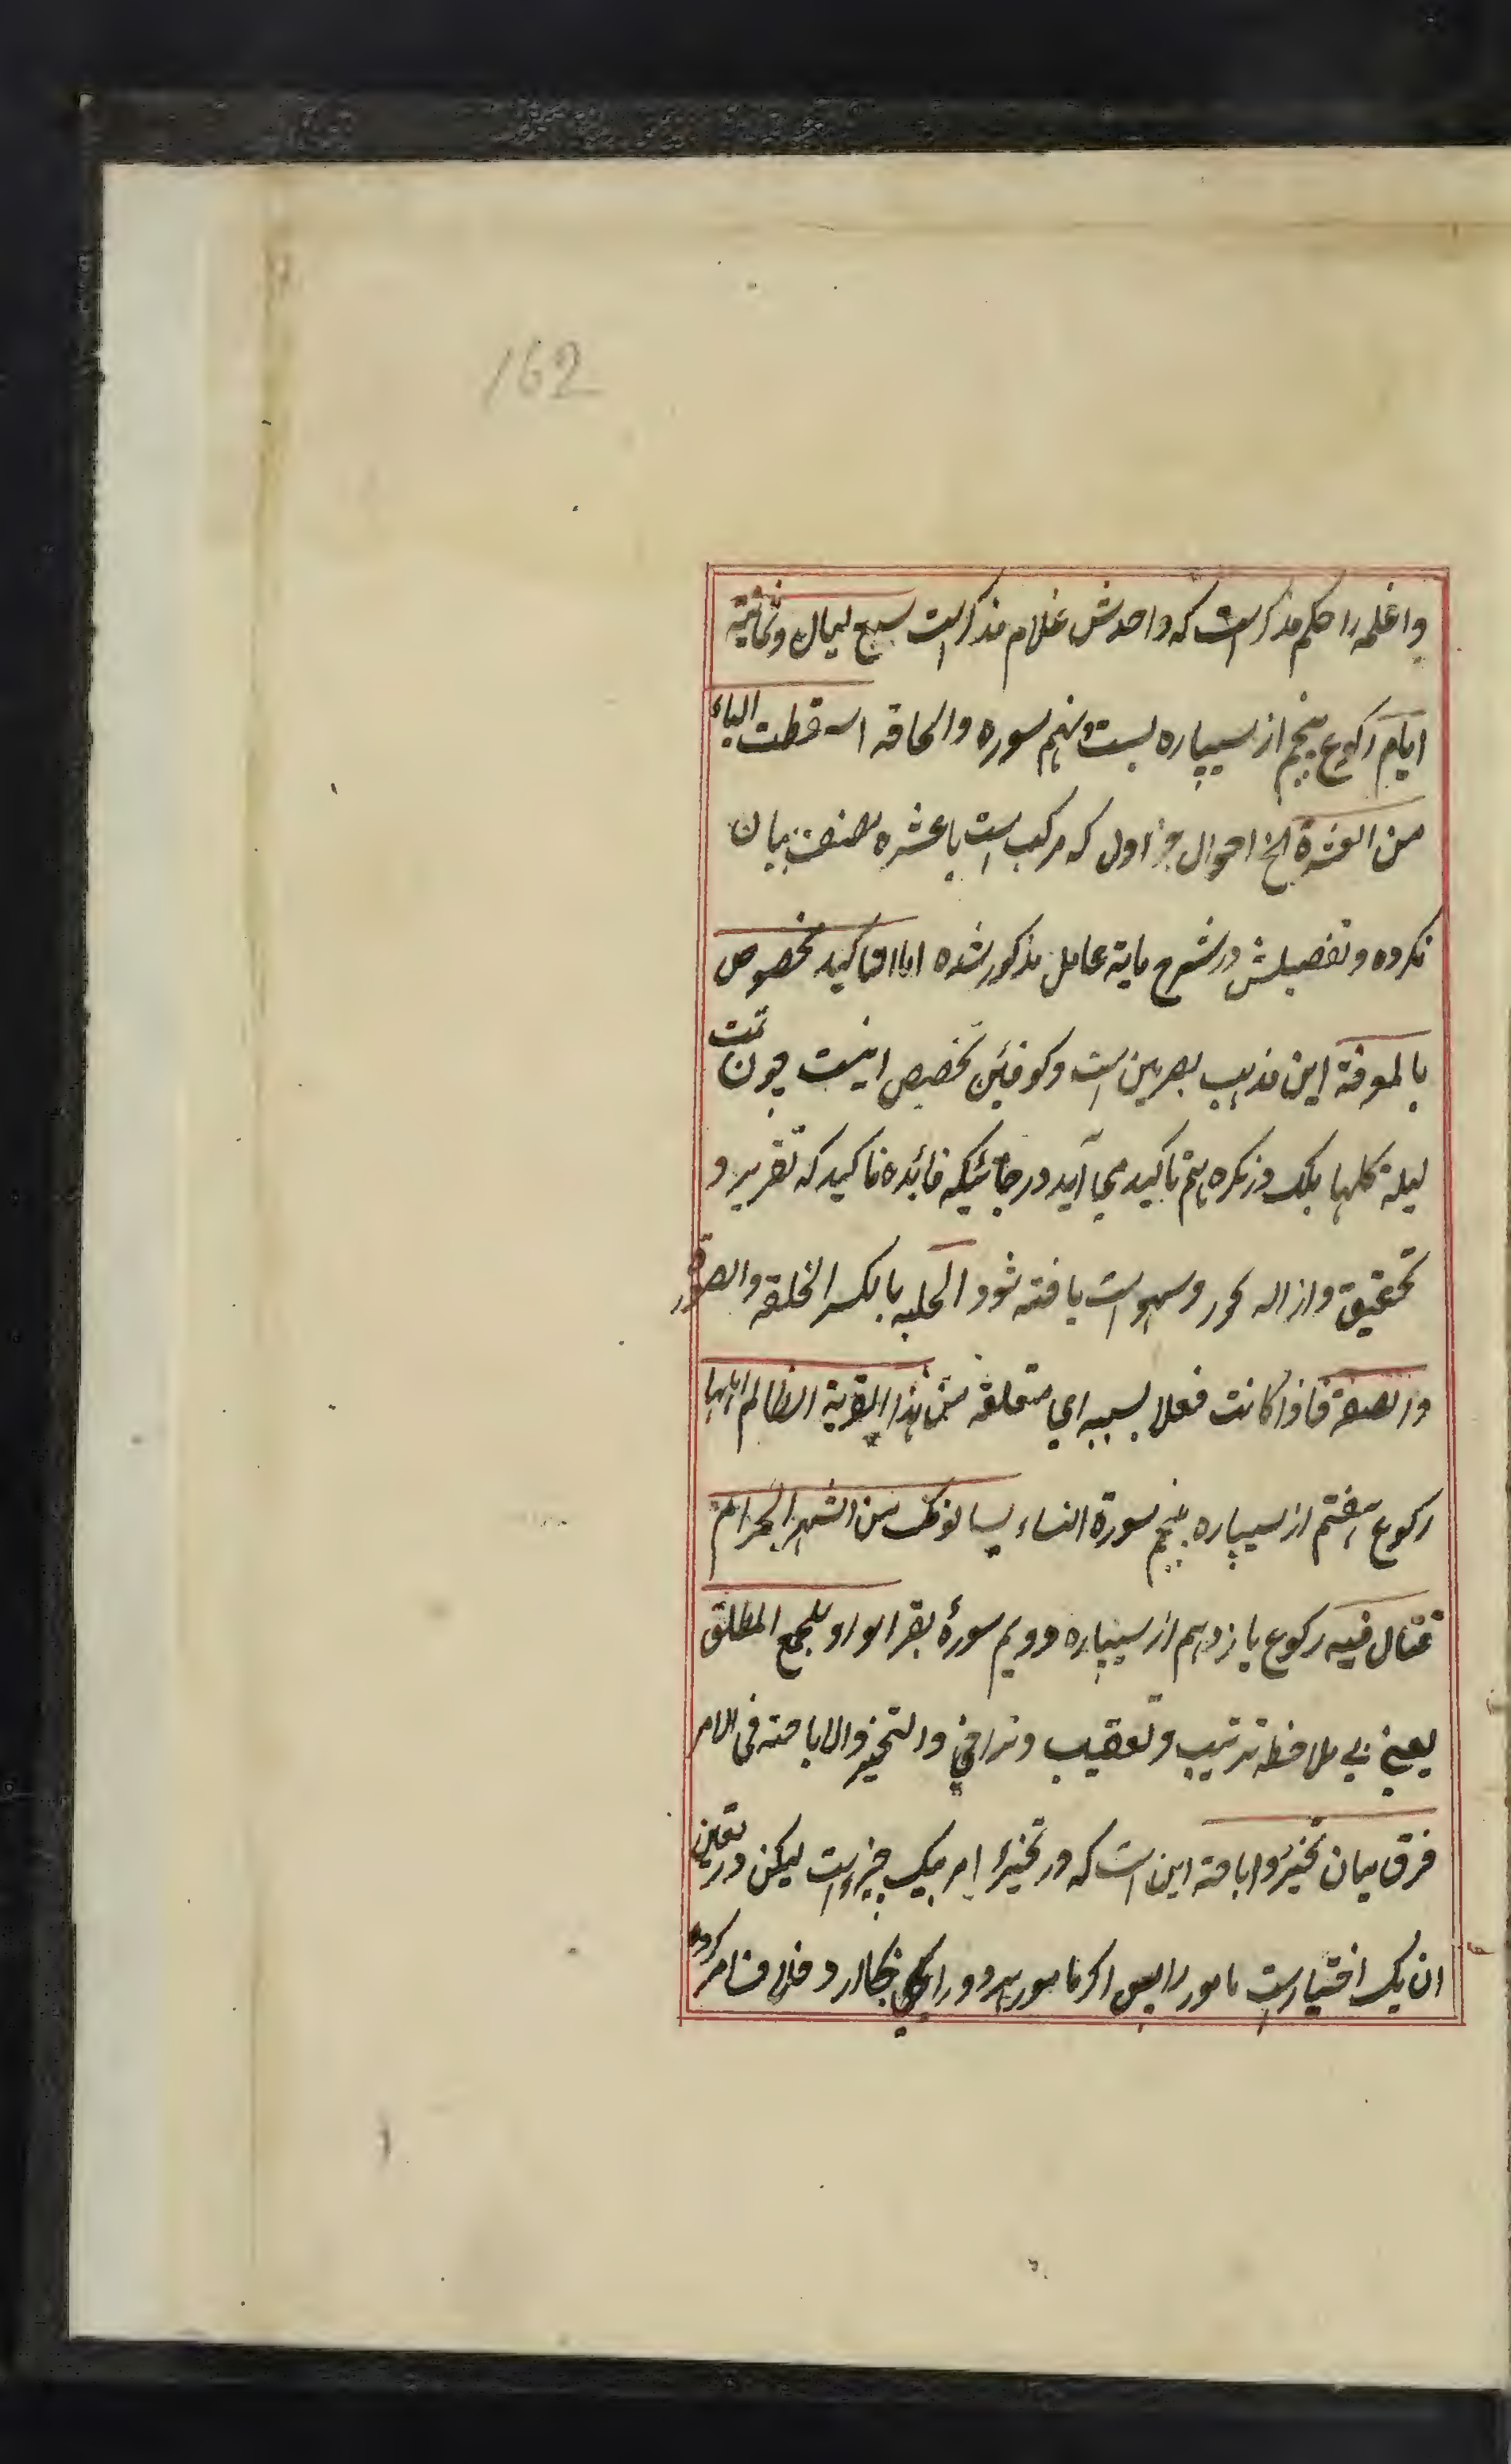 162
واغلمه را حکم مذکر است که واحدش غلام مذکر است سبع لیال وثمانیة
ایام رکوع پنجم از سیپاره بست ونهم سوره والحاقه اسقطت الیاء
من العشرة الخ احوال جزء اول که مرکب است باعشره مصنف بیان
نکرده وتفصیلش در شرح مایة عامل مذکور شده اما التاکید مخصوص
بالمعرفة این مذهب بصریین است وکوفیئن تخصیص نیست چون قمت
لیلة کلها بلکه در نکره هم تاکید می آید در جائیکه فائده تاکید که تقریر و
تحقیق وازاله تحوز وسهو است یافته شود الحلیه بالکسر الخلقة والصورة
والصفة فاذا کانت فعلا لسببه ای متعلقه من هذه القریة الظالم اهلها
رکوع هفتم از سیپاره پنجم سورة النساء یسالونک عن الشهر الحرام
قتال فیه رکوع یازدهم از سیپاره دویم سورهٔ بقر الواو للجمع المطلق
یعنی بی ملاحظه ترتیب وتعقیب وتراخی والتخیر والاباحته فی الامر
فرق میان تخیر واباحته این است که در تخیر امر بیک چیز است لیکن در تعین
ان یک اختیار است مامور را پس اکر مامور هر دو را بجا ارد خلاف امر کرده